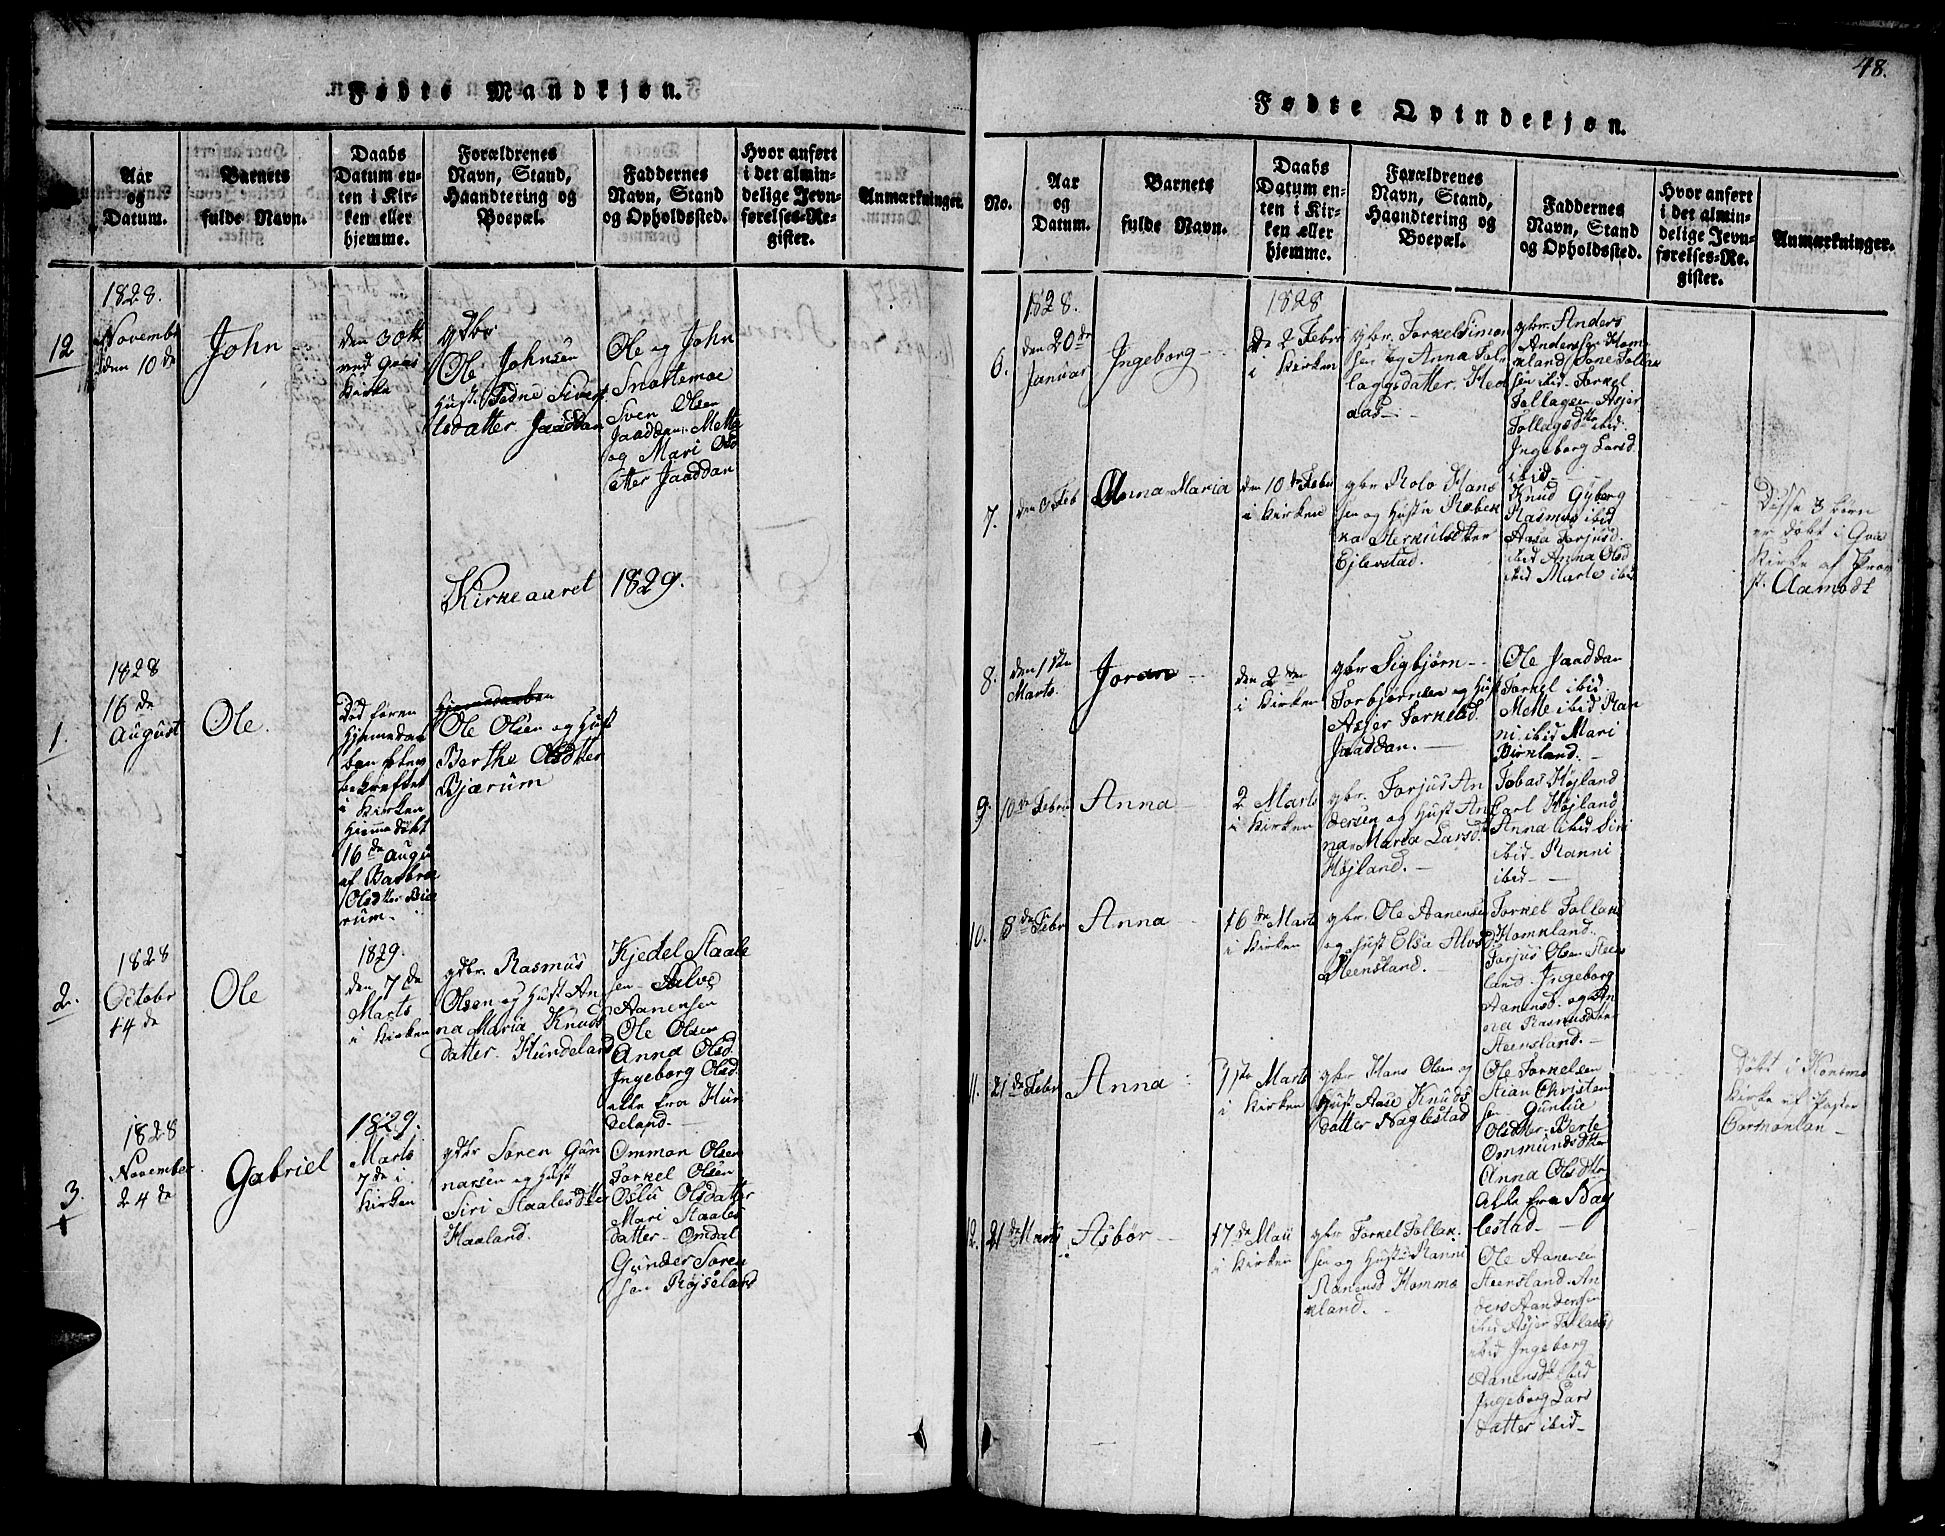 Fødte Mandkjøn.
Aar
og
Datum.
Barnets
fulde Navn.
Daabs
Datum en-
ten i Kir-
ken eller
hjemme.
Forældrenes
Navn, Stand,
Haandtering og
Boepæl.
Faddernes
Navn, Stand
og Opholdssted.
Hvor anført
i det almin-
delige Jevn-
førelses-Re-
gister.
Anmærkninger.
12
1828.
Novembr
den 10 de
John
den 30tt
ved
Kirke
gdbr
Ole Johnsen
Hust. Tedne Sivert
tsdatter Jaaddan
Ole og John
Snartemoe
Sven Olsen
Jaaddan. Mette
og Mari Olsd
etter Jaaddan
Kirkeaaret 1829.
1.
1828
16 de
August
Ole.
Død foren
Hjemmedaa
ben blev
bekræftet
i Kirken
Hjemmedøbt
16 de Augu
af Barbra
Olsdtter Bie
rum.
Ole Olsen og Hust
Berthe Olsdtter
Bjærum
2.
1828
Octobr
14 de
Ole
1829.
den 7 de
Marts
i Kirken
gdbr. Rasmus
Olsen og Hust An
na Maria Knuds
datter. Hundeland
Kjedel Staale
sen Salve
Aanensen
Ole Olsen
Anna Olsd.
Ingeborg Olsd.
alle fra Hun
deland.
3.
1828
November
24 de
Gabriel
1829.
Marts
7 de i
Kirken
gdbr Søren Gun
narsen og Hust
Siri Staalesdtter
Haaland.
Ommon Olsen
Torkel Olsen
Oslu Olsdatter
Mari Staales
datter Omdal
Gunder Søren
sen Røiseland
48.
Fødte Qvindekjøn.
No.
Aar
og
Datum.
Barnets
fulde Navn.
Daabs
Datum en-
ten i Kir-
ken eller
hjemme.
Forældrenes
Navn, Stand,
Haandtering og
Boepæl.
Faddernes
Navn, Stand
og Opholdssted.
Hvor anført
i det almin-
delige Jevn-
førelses-Re-
gister.
Anmærkninger.
6.
1828.
den 20 de
Januar
Ingeborg
1828
de 2 Febr
i Kirken
gbr. Torkel Simon
sen og Anna Tol
laggsdatter. Hed
aas
gbr. Anders
Andersen Hom
kland Tone Tollax
sen ibid. Torkel
Tollagsen Asjer
Tollagsdtter ibid.
Ingeborg Larsd
ibid.
7.
den 3 Feb
Anna Maria
den 10 de Febr
i Kirken
gbr Rolv Hans
sen og Hustr Rebek
ka Merkulsdtter
Ejlevstad.
Knud Gyberg
Rasmus ibid
Aasa Torjusd.
ibid Anna Olsd
ibid Marte ibid
Disse 3 børn
er døbt i
Kirke af Prov
st. Aamodt
8.
den 1 ste
Marts.
Joran
den 2 den
i Kirken
gbr Sigbjørn
Torbjørnsen og Hust
Asjer Torkelsd.
Jaaddan.
Ole Jaaddan
Torkel ibid.
Mette ibid Ran
ni ibid Mari
Birkland.
9.
10 de Febr
Anna
2 Marts
i Kirken
gbr. Torjus An
dersen og Hust An
na Maria Larsd.
Højland.
Tobas Højland
Carl Højland
Anna ibid Siri
ibid. Ranni
ibid
10.
8 de Febr
Anna
16 de Marts
i Kirken
gbr. Ole Aanensen
og Hust Elsa Alvsd
Steensland.
Torkel Tollard
Homkland.
Torjus Olsen Steens
land. Ingeborg
Aanensd. og An
na Rasmusdtter
Steensland.
11.
21 de Febr
Anna
1ste Marts
i Kirken
gbr Hans Olsen og
Hust Aase Knuds
datter Naglestad
Ole Torkelsen
Stian Christen
sen Gunlue
Olsdtter. Berte
Ommundsdtter
Anna Olsdtter
Alle fra Nag
lestad.
Døbt i
Kirke af Pastor
12.
21 de Marts
Asbør
17 de Mai
i Kirken
gbr Torkel Tollak
sen og Hustr Ranni
Aanensd Homme
kland.
Ole Aanensen
Steensland. An
ders Aandersen
ibid Asjer Tollaksd
ibid Ingeborg
Aanensdt ibid
Ingeborg Lars
datter ibid